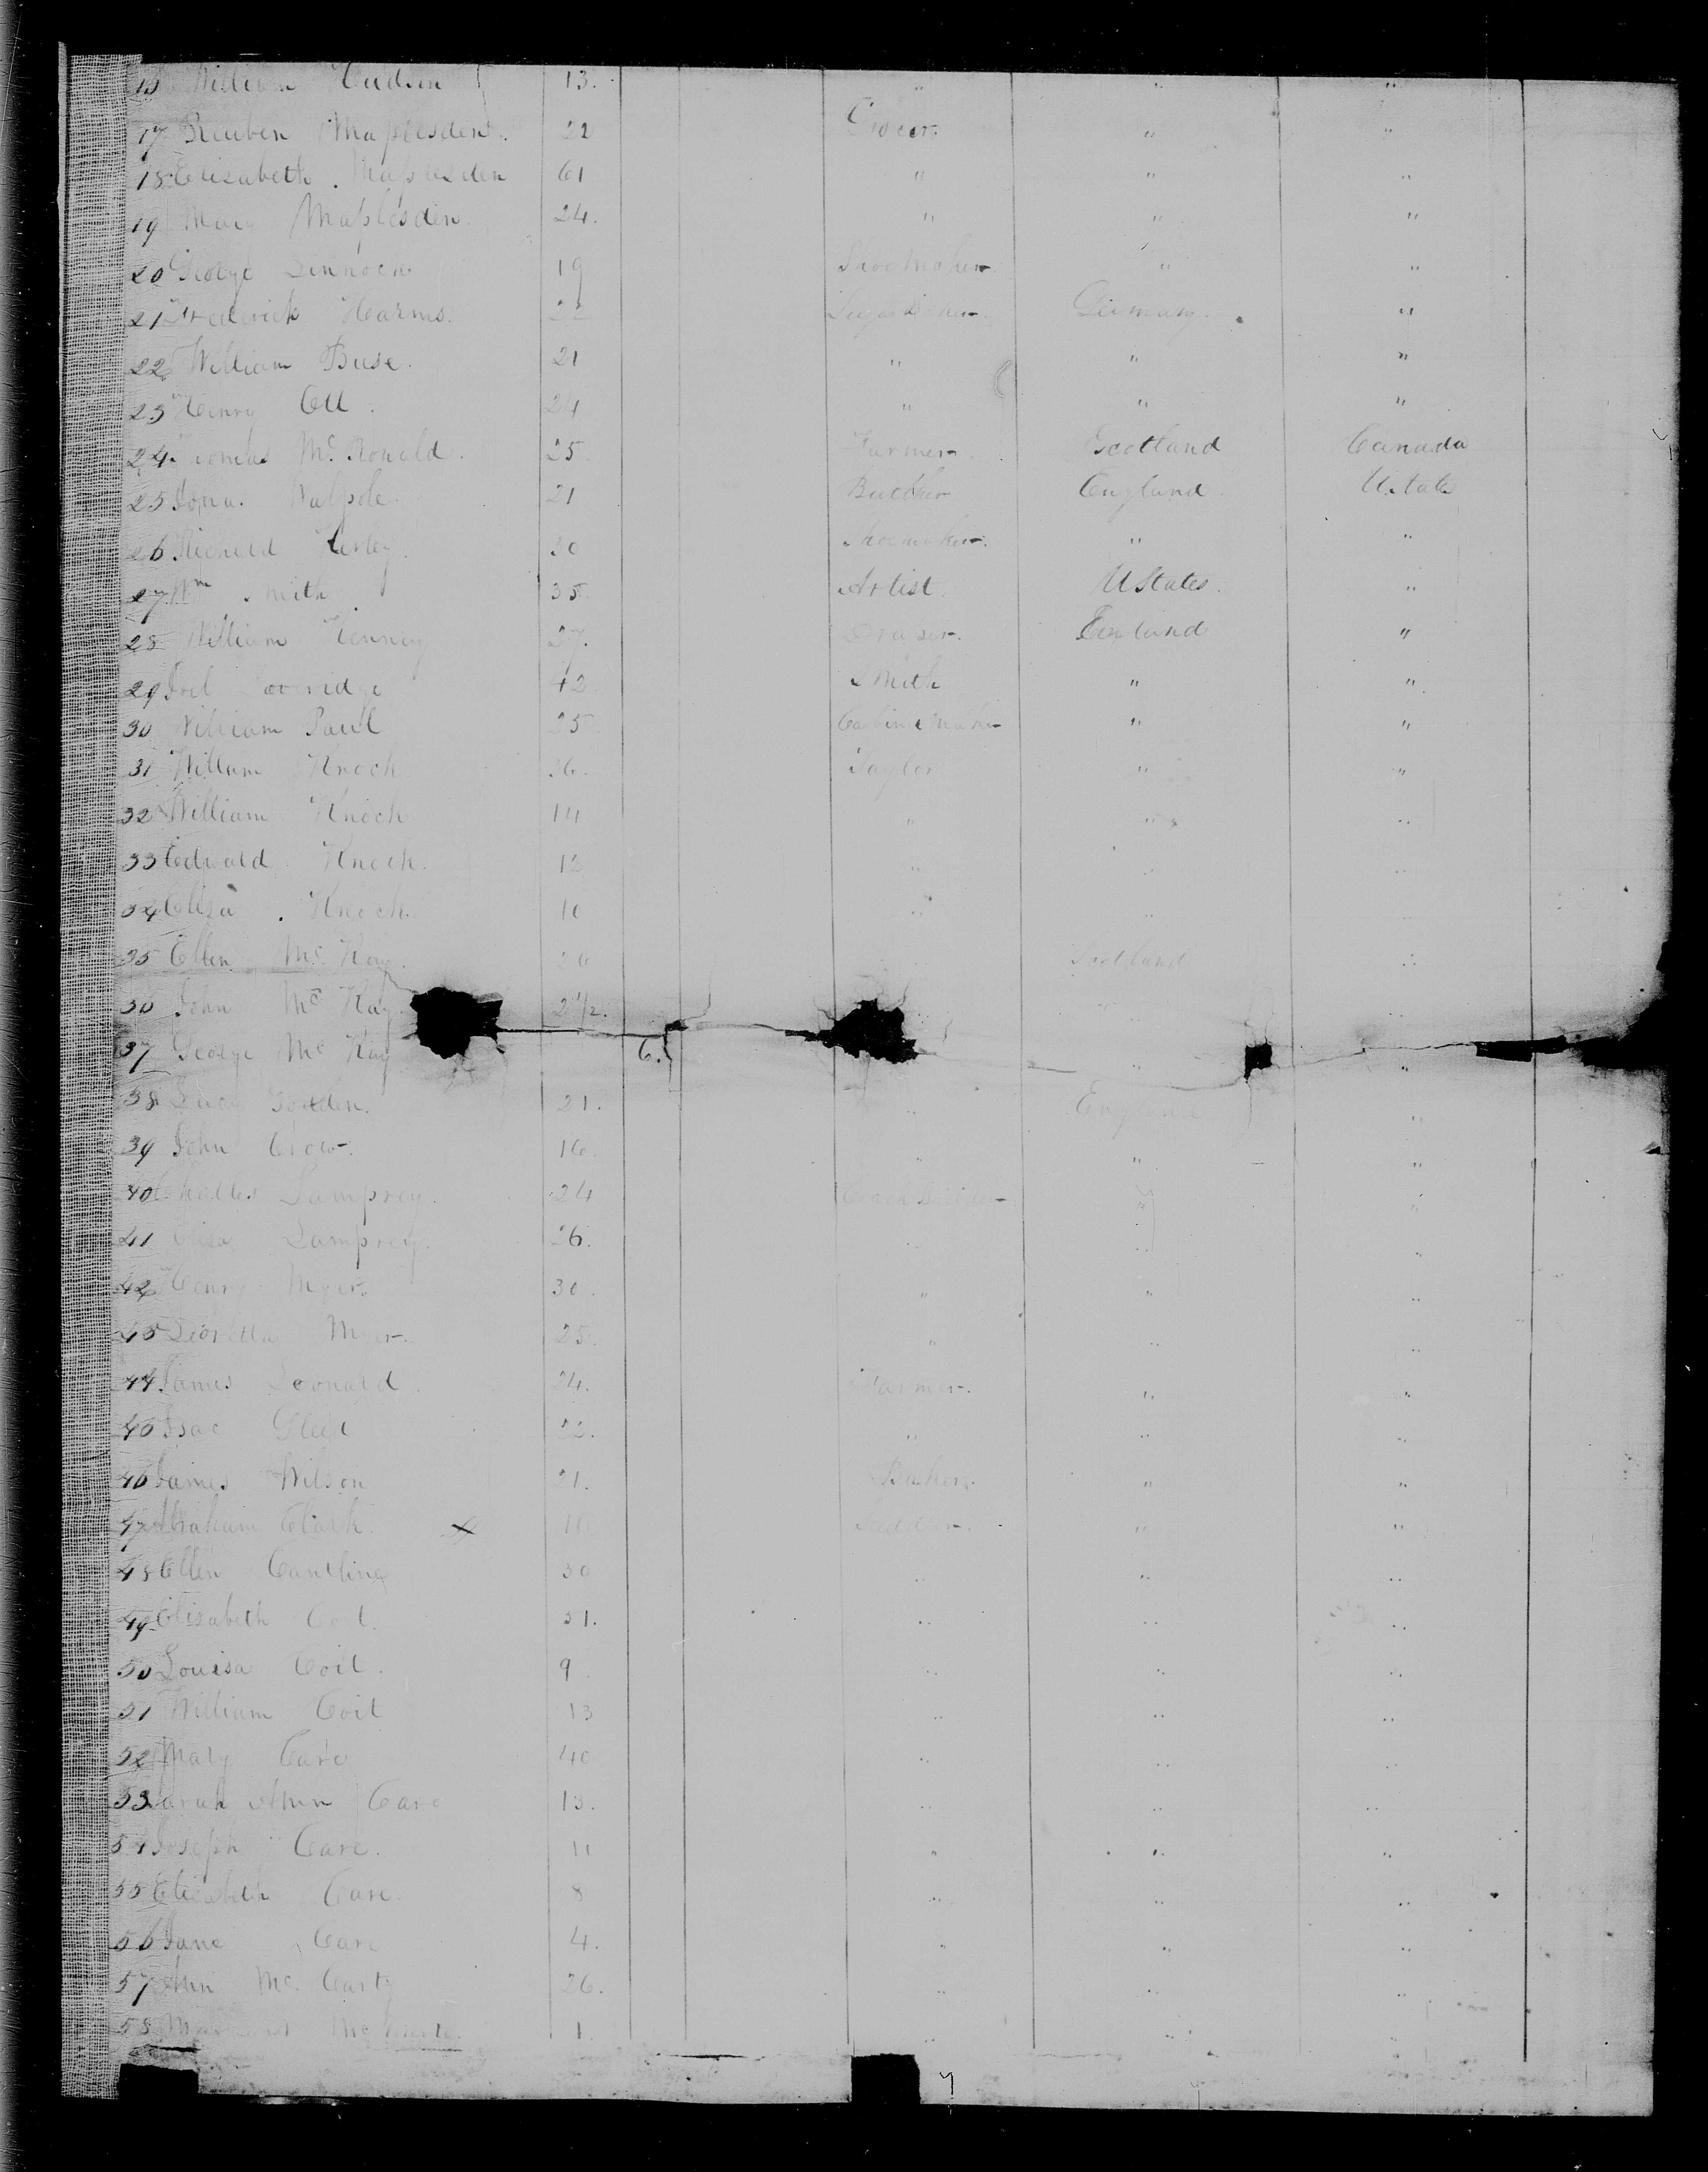 William Hudson 13. " " "
17 Reuben Maplesden. 22 Grocer. " "
18 Elizabeth Maplesden 61 " " "
19 Mary Maplesden. 24. " " "
20 George 19 Shoemaker " "
21 Frederick Harms. Germany. "
22 William Buse. 21 " " "
23 Henry Ott. 24 " " "
24 Thomas Mc. Ronald. 25 Farmer. Scotland Canada
25 Walpole. 21 Butcher England. U. States
26 Richard 30 Shoemaker. " "
27 Wm Smith 35. Artist. U States. "
28 William Kenney 27. Draper. England "
29 Joel Loveridge 42 Smith " "
30 William Paul 25 Cabinet Maker " "
31 William Knoch 36. Taylor " "
32 William Knoch 14 " " "
33 Edward Knoch. 12 " " "
34 Eliza Knoch. 10 " " "
35 Ellen Mc. Kay. Scotland "
36 John Mc Kay 2 1/2. " "
37 George Mc Kay 6. " "
38 Lucy Godden. 21. " England "
39 John Crow. 16. " " "
40 Charles Lamprey. 24 Coach Builder " "
41 Eliza Lamprey. 26. " " "
42 Henry Myer. 30. " " "
43 Myer. 25. " " "
44 James Leonard 24. Farmer. " "
45 Isac 22. " " "
46 James Wilson 21. Baker. " "
47 Abraham Clark. x Saddler. " "
48 Ellen Cantling 30 " " "
49 Elizabeth Coil. 31. " " "
50 Louisa Coil. 9. " " "
51 William Coil 13 " " "
52 Mary Care 40 " " "
53 Sarah Ann Care 13. " " "
54 Joseph Care. 11 " " "
55 Elizabeth Care. 8 " " "
56 Jane Care 4. " " "
57 Ann Mc. Carty 26. " " "
58 1. " " "